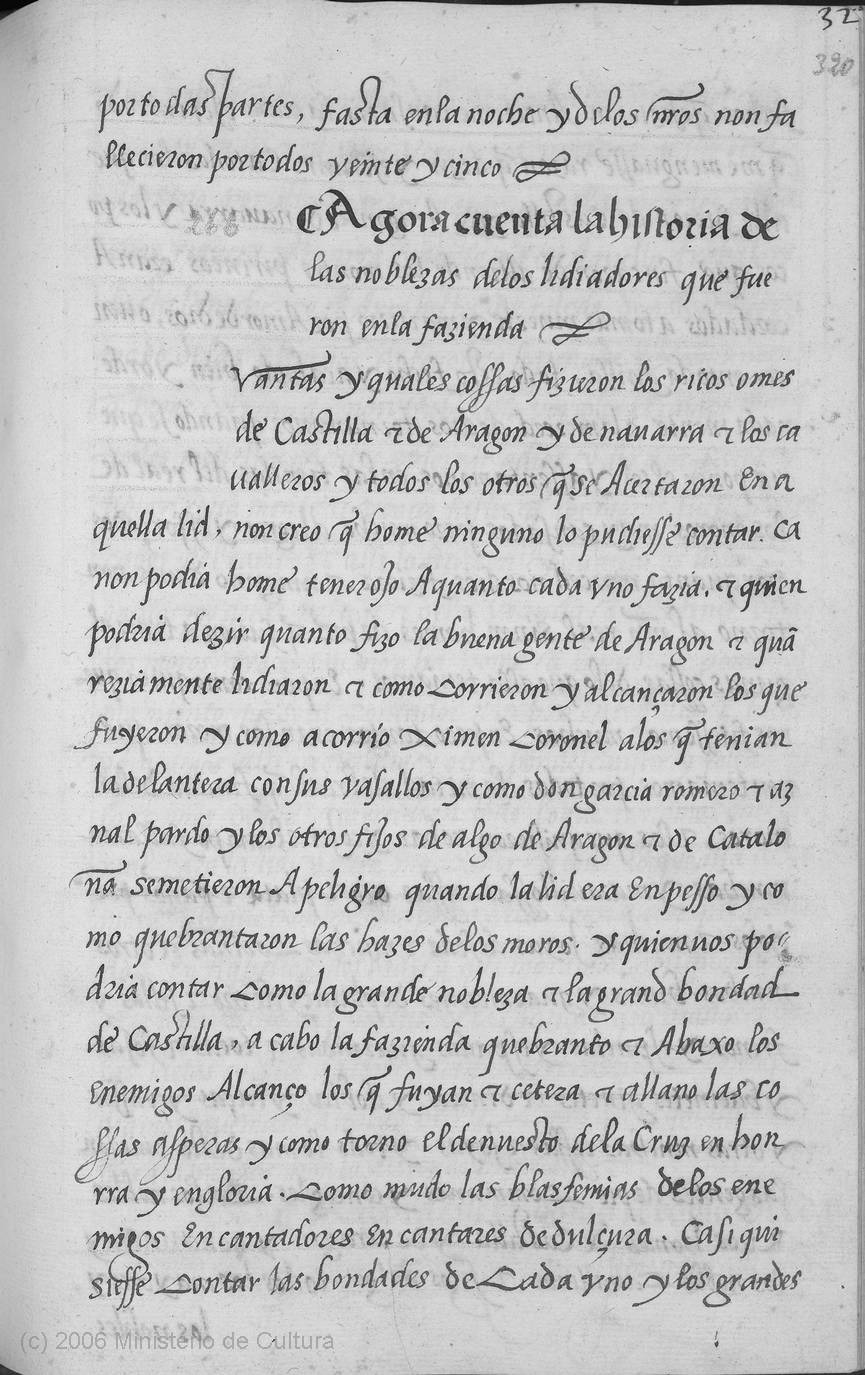 32
320
por todas partes, fasta en la noche y de los nr̃os non fa
llecieron por todos veinte y cinco
¶ Agora cuenta la historia de
las noblezas de los lidiadores que fue
ron en la fazienda
Vantas y quales cossas fizieron los ricos omes
de Castilla ⁊ de Aragon y de navarra ⁊ los ca
ualleros y todos los otros q̃ se Acertaron En a
quella lid, non creo q̃ home ninguno lo pudiesse contar. ca
non podia home tener ojo A quanto cada vno fazia. ⁊ quien
podria dezir quanto fizo la buena gente de Aragon ⁊ quã
reziamente lidiaron ⁊ como Corrieron y alcançaron los que
fuyeron y como acorrio Ximen Coronel a los q̃ tenian
la delantera con sus vasallos y como don garcia romero ⁊ az
nal pardo y los otros fijos de algo de Aragon ⁊ de Catalo
ña se metieron A peligro quando la lid era En pesso y co
mo quebrantaron las hazes de los moros. y quien uos po
dria contar Como la grande nobleza ⁊ la grand bondad
de Castilla, acabo la fazienda quebranto ⁊ Abaxo los
Enemigos Alcanço los q̃ fuyan ⁊ cetera ⁊ allano las co
ssas asperas y como torno el denuesto de la Cruz en hon
rra y en gloria. Como mudo las blasfemias de los ene
migos Encantadores En cantares de dulçura. Ca si qui
siesse Contar las bondades de Cada vno y los grandes
(c) 2006 Ministerio de Cultura